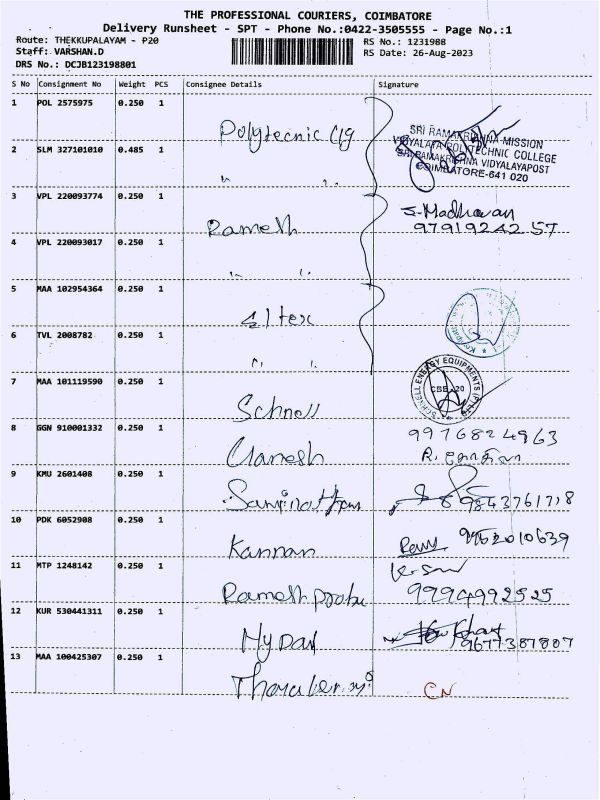 THE PROFESSIONAL COURIERS, COIMBATORE
Delivery Runsheet - SPT - Phone No.:0422-3505555 - Page No.:1
Route: THEKKUPALAYAM - P20
RS No.: 1231988
Staff: VARSHAN.D
RS Date: 26-Aug-2023
DRS No.: DCJB123198801
S No Consignment No Weight PCS Consignee Details Signature
1 POL 2575975 0.250 1
Polytecnic Clg
SRI RAMAKRISHNA MISSION
VIDYALAYA POLYTECHNIC COLLEGE
SRI RAMAKRISHNA VIDYALAYAPOST
COIMBATORE-641 020
2 SLM 327101010 0.485 1
" "
3 VPL 220093774 0.250 1
Ramesh
S. Madhavan
9791924257
4 VPL 220093017 0.250 1
" "
5 MAA 102954364 0.250 1
6 TVL 2008782 0.250 1
" "
7 MAA 101119590 0.250 1
Schnell
SCHNELL ENERGY EQUIPMENTS (P) LTD
CBE-20
8 GGN 910001332 0.250 1
9976824963
R.
9 KMU 2601408 0.250 1
9843761718
10 PDK 6052908 0.250 1
Kannan
9962010639
11 MTP 1248142 0.250 1
Ramesh prabu
9994992525
12 KUR 530441311 0.250 1
My Dad
9677387807
13 MAA 100425307 0.250 1
CN